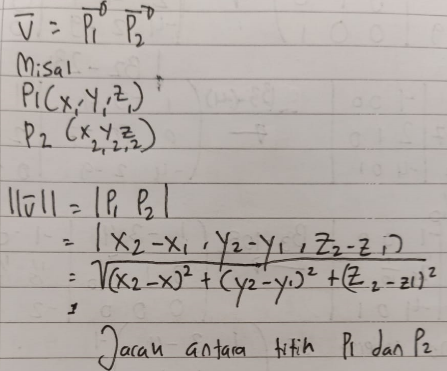 V̄ = P̄₁ P̄₂
Misal
P₁(x₁, y₁, z₁)
P₂ (x₂, y₂, z₂)
||v̄|| = |P₁ P₂|
= |x₂-x₁, y₂-y₁, z₂-z₁)
= √(x₂-x)² + (y₂-y₁)² + (z₂-z₁)²
Jacak antara titik P₁ dan P₂